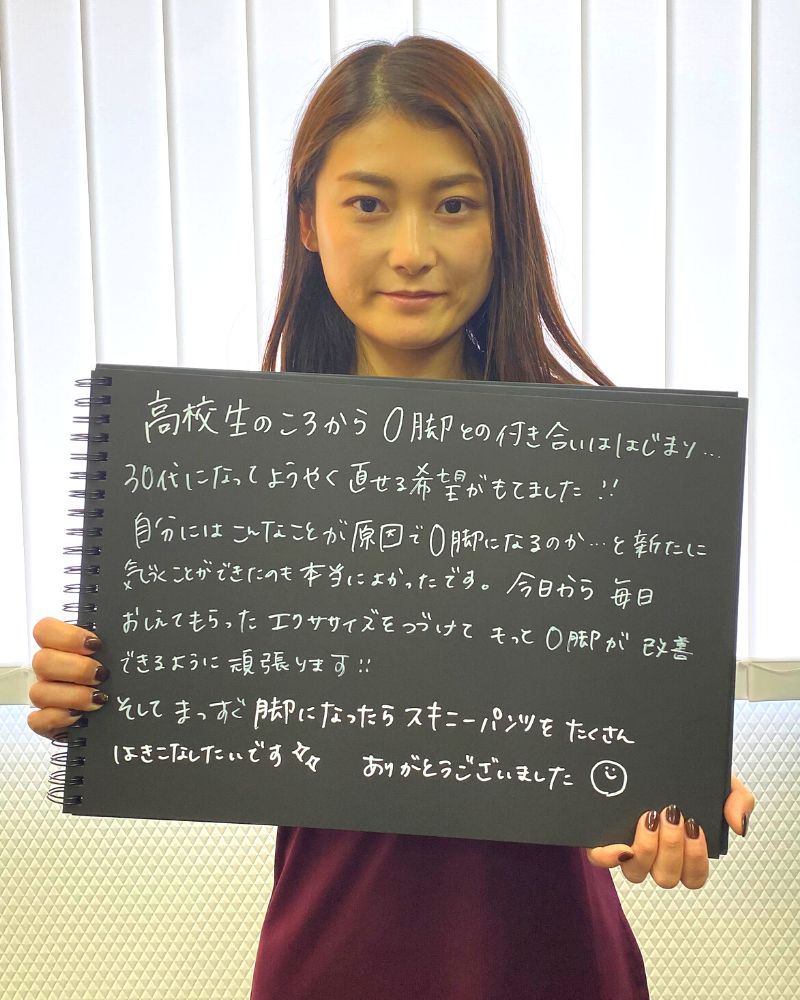 高校生のころから O脚との付き合いははじまり...
30代になってようやく直せる希望がもてました!!
自分にはこんなことが原因でO脚になるのか...と新たに
気づくことができたのも本当によかったです。今日から毎日
おしえてもらったエクササイズをつづけて もっとO脚が改善
できるように頑張ります!!
そしてまっすぐ脚になったらスキニーパンツをたくさん
はきこなしたいです✨ ありがとうございました☺